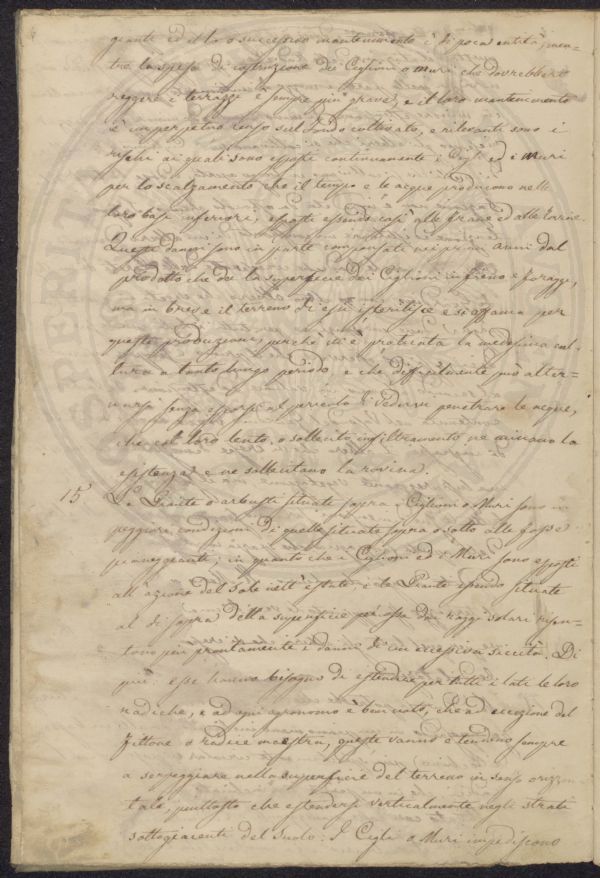 giante ed il lo o successivo mantenimento è di poca entità, men-
tre la spesa di costruzione dei Ciglioni o Muri che dovrebbero
reggere i terrazzi è sempre più grave, e il loro mantenimento
è un perpetuo censo sul fondo coltivato, e rilevanti sono i
rischi ai quali sono esposti continuamente i Cigl. ed i Muri
per lo scalzamento che il tempo e le acque producono nelle
loro basi inferiori, esposti essendo così alle frane ed alle
Questi danni sono in parte compensati nei primi anni dal
prodotto che dà la superficie dei Ciglioni in fieno e foraggi,
ma in breve il terreno di essi isterilisce e si affama per
queste produzioni, perchè vi è praticata la medesima cul-
tura a tanto lungo periodo, e che difficilmente può alter-
narsi senza esporsi al pericolo di vedervi penetrare le acque,
che col loro lento, o sollecito infiltramento ne minano la
esistenza e ne sollecitano la rovina.
15 Le Piante o arbusti situate sopra i Ciglioni o Muri sono in
peggiori condizioni di quelle situate sopra o sotto alle fosse
pianeggianti, in quanto che i Ciglioni ed i Muri sono esposti
all'azione del Sole nell'estate, e le Piante essendo situate
al di sopra della superficie percossa dai raggi solari risen-
tono più prontamente i danni di un eccessiva siccità. Di
più: esse hanno bisogno di estendere per tutti i lati le loro
radiche, e ad ogni agronomo è ben noto, che ad eccezione del
Fittone o radice maestra, queste vanno e tendono sempre
a serpeggiare nella superficie del terreno in senso orizzon-
tale, piuttosto che estendersi verticalmente negli strati
sottogiacenti del Suolo: I Cigli o Muri impediscono